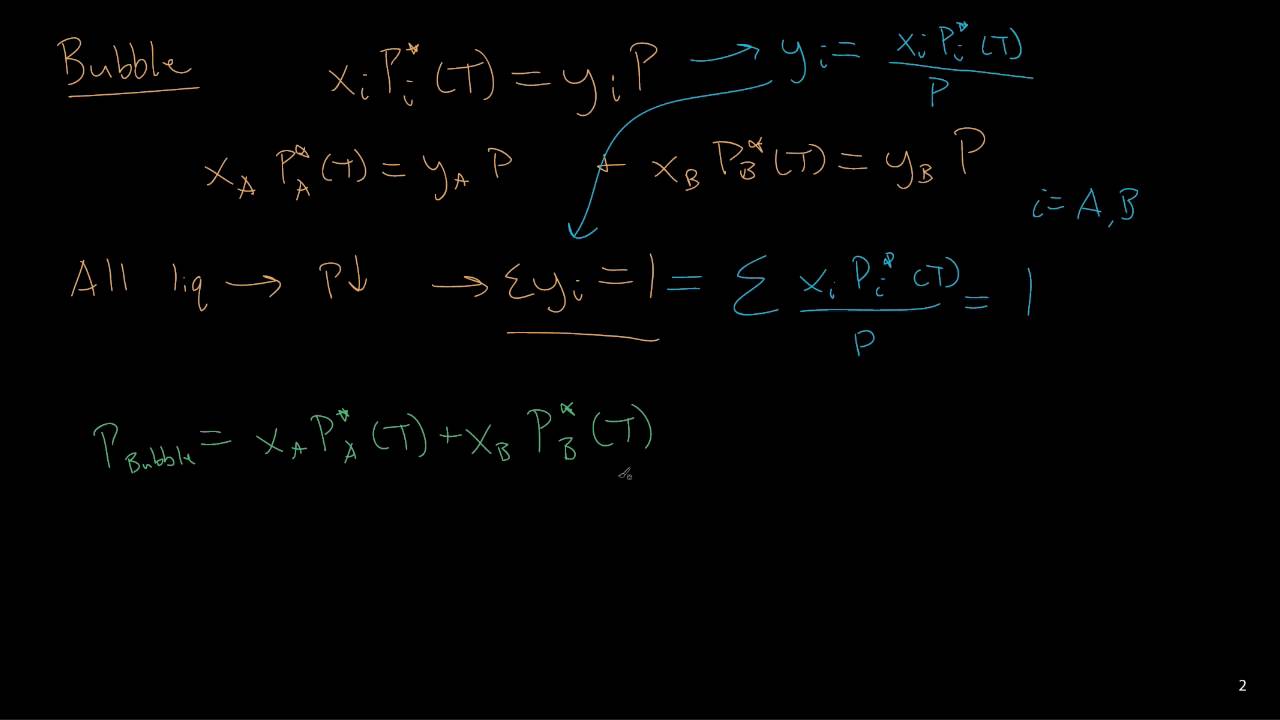 Bubble xᵢ Pᵢ*(T) = yᵢ P → yᵢ = xᵢ Pᵢ*(T) / P
x_A P_A*(T) = y_A P + x_B P_B*(T) = y_B P
i = A, B
All liq → P↓ → Σyᵢ = 1 = Σ xᵢ Pᵢ*(T) / P = 1
P_Bubble = x_A P_A*(T) + x_B P_B*(T)
2